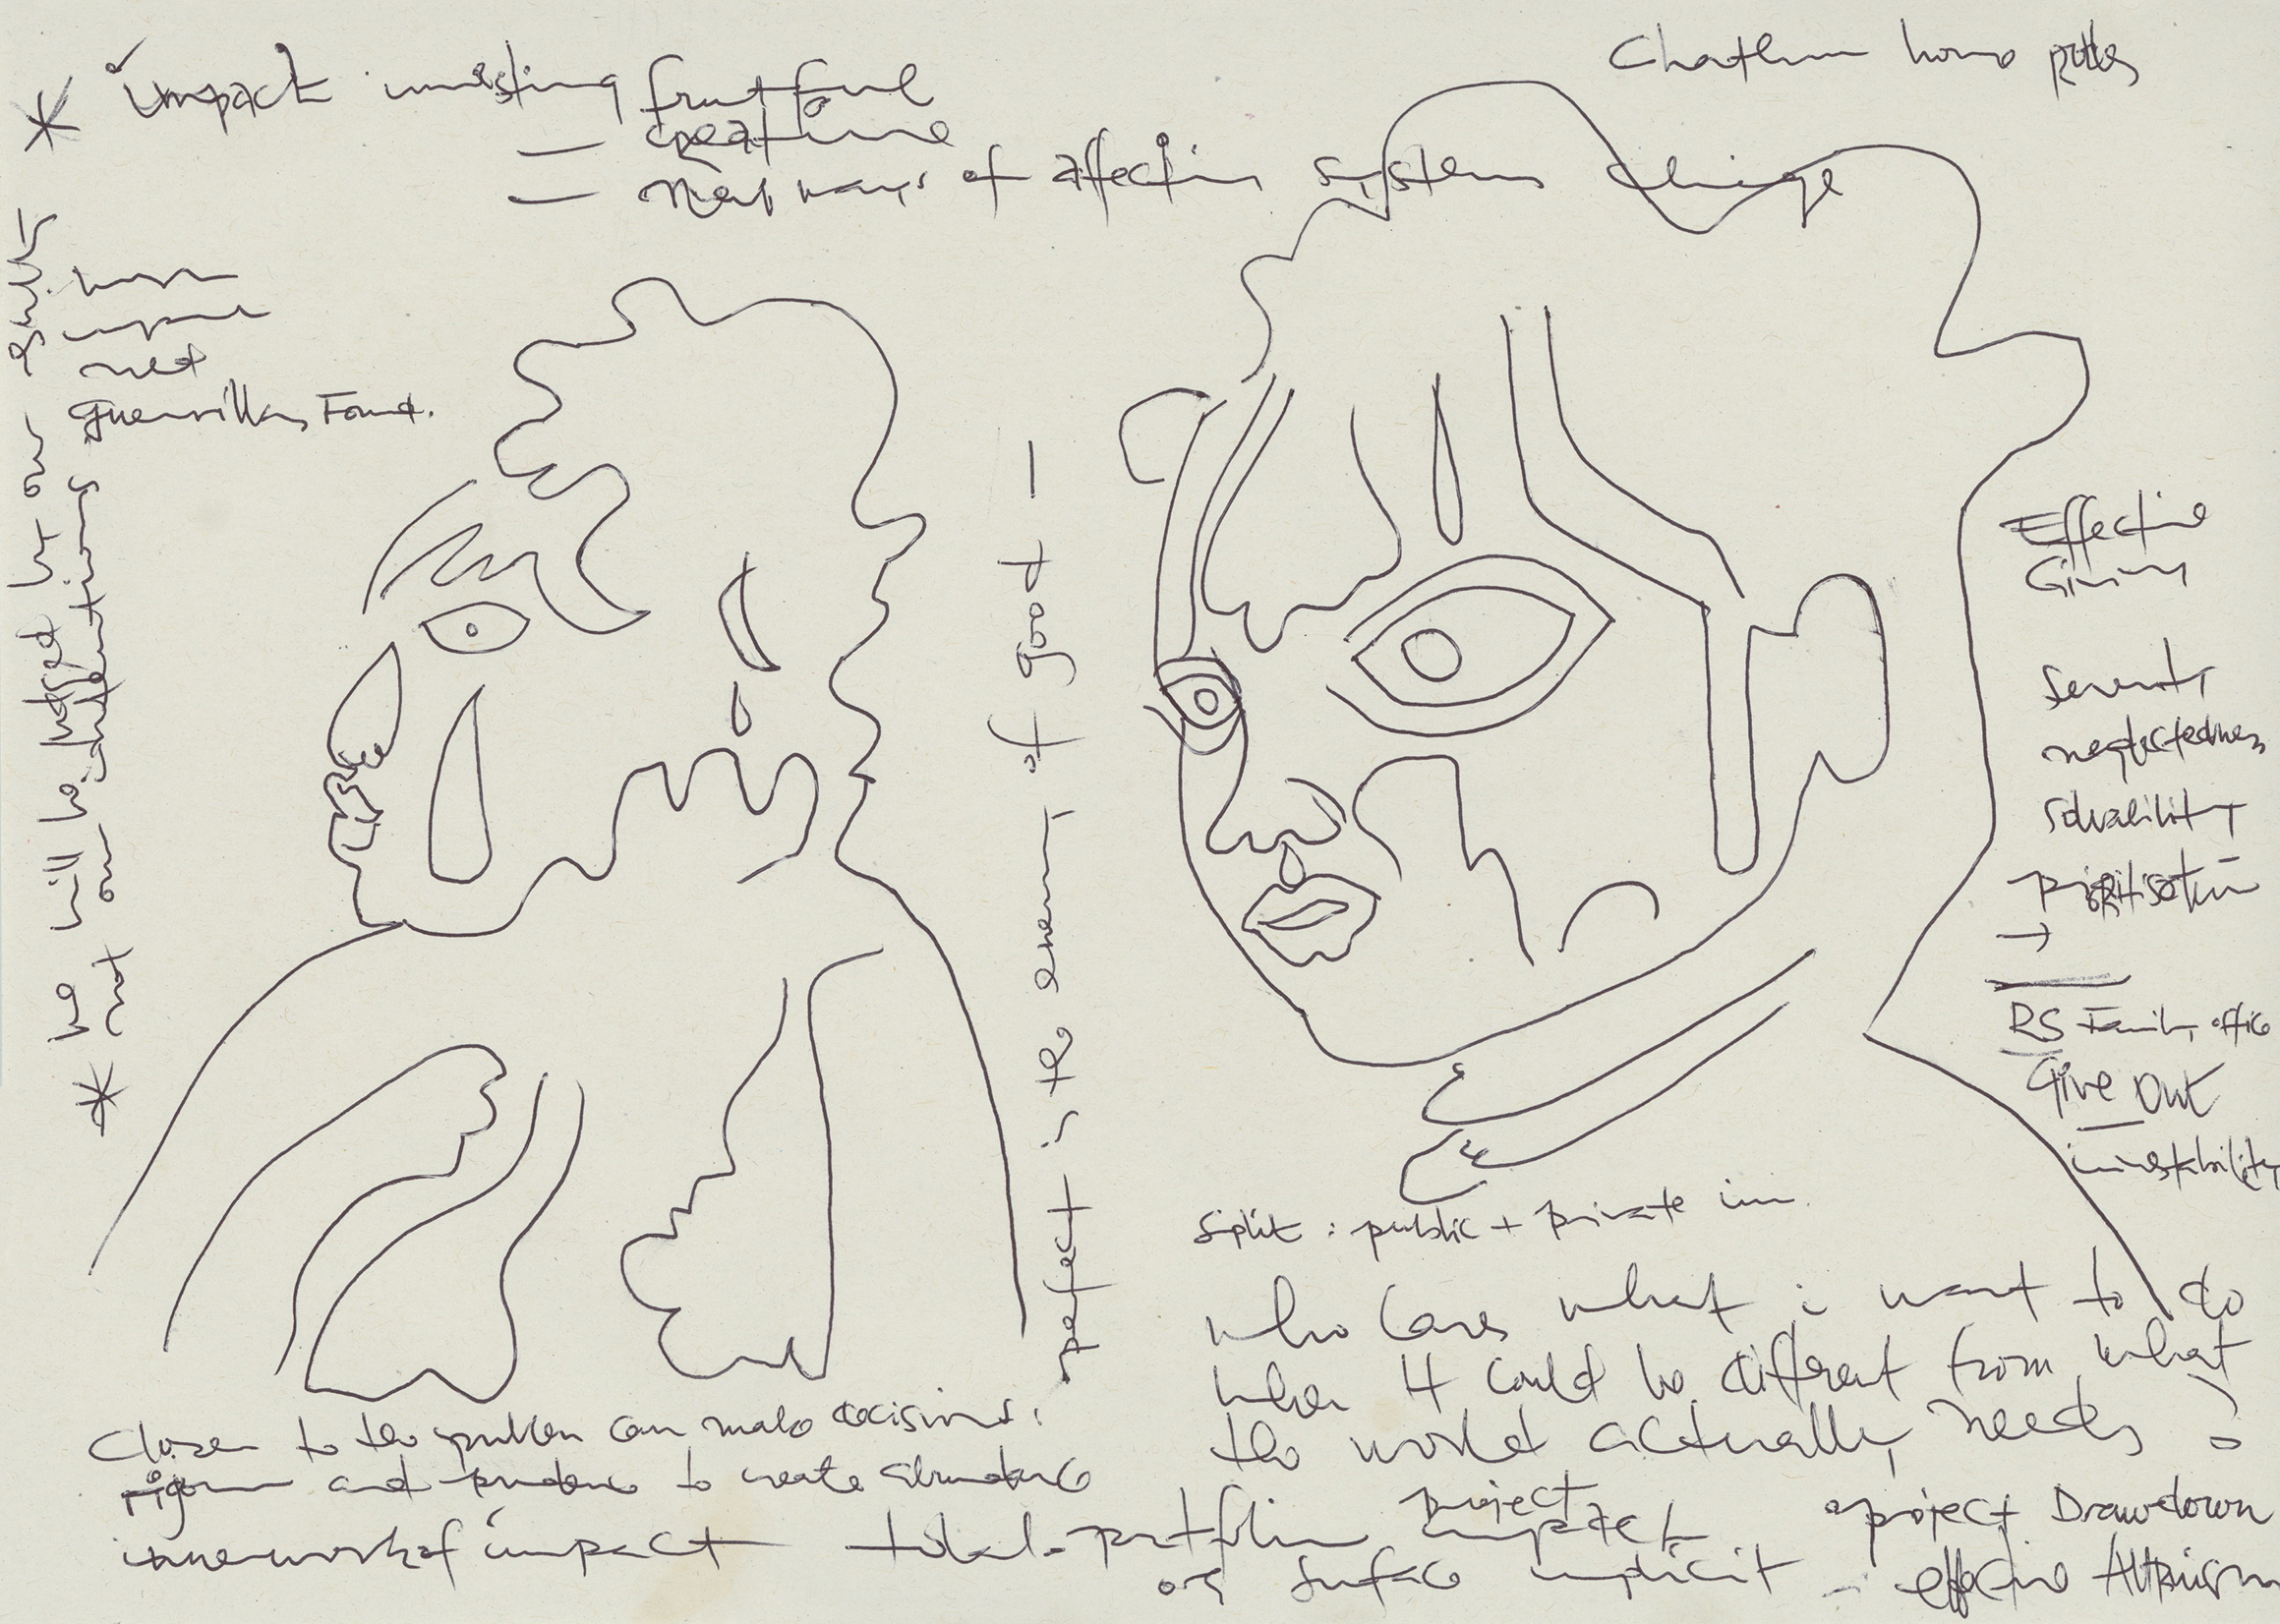 Chatham house rules
* impact investing fruitful
— creative
— new ways of affecting systems change
* we will be judged by our results
not our intentions
net
Guerrilla Found.
perfect is the enemy of good —
Effective
Giving
Severity
neglectedness
solvability
prioritisation
→
RS Family office
Give Out
investability
Split : public + private inv.
who cares what i want to do
when it could be different from what
the world actually needs ?
Closer to the problem can make decisions.
rigour and prudence to create abundance
inner work of impact
total-portfolio project impact
or surface implicit
project Drawdown
effective Altruism